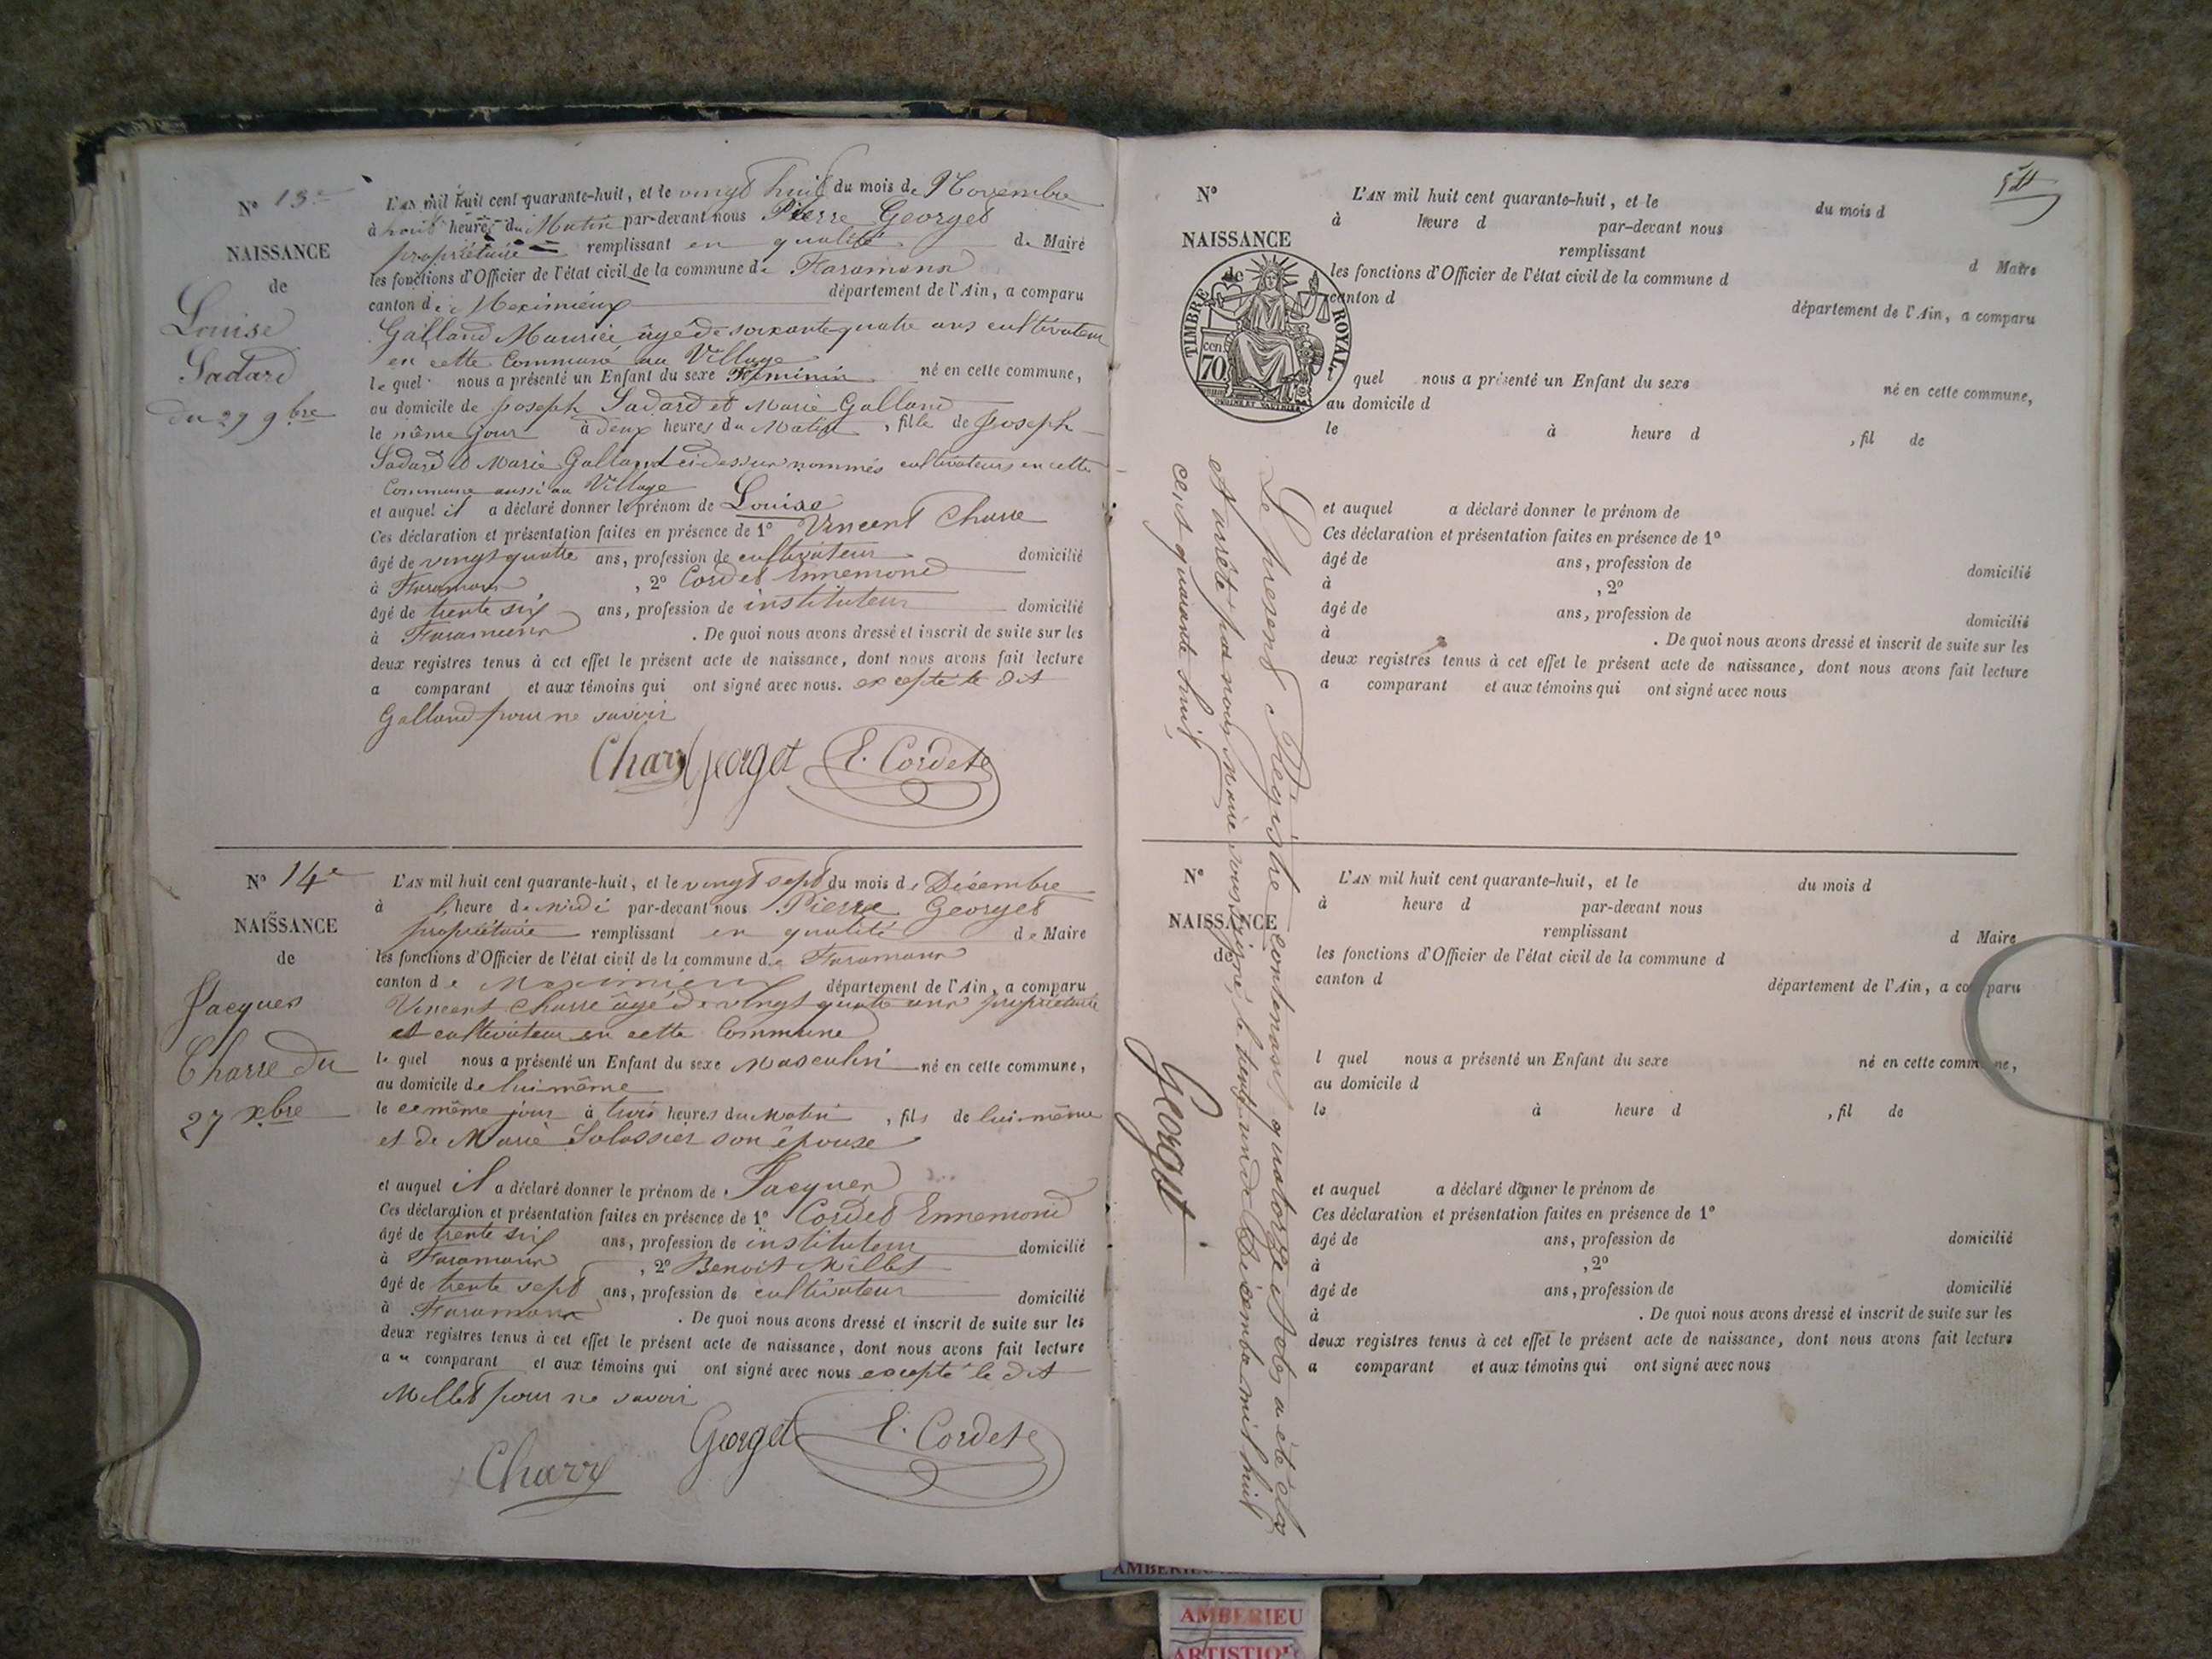 N° 13e
NAISSANCE
de
Louise
Sadard
du 27 9bre
L'AN mil huit cent quarante-huit, et le vingt huit du mois de Novembre
à huit heures du Matin par-devant nous Pierre Georget
propriétaire remplissant en qualité de Maire
les fonctions d'Officier de l'état civil de la commune de Faramans
canton de Meximieux département de l'Ain, a comparu
Galland Maurice âgé de soixante quatre ans cultivateur
en cette Commune au Village
le quel nous a présenté un Enfant du sexe Féminin né en cette commune,
au domicile de Joseph Sadard et Marie Galland
le même jour à deux heures du Matin, fille de Joseph
Sadard et Marie Galland ci dessus nommés cultivateurs en cette
Commune aussi au Village
et auquel il a déclaré donner le prénom de Louise
Ces déclaration et présentation faites en présence de 1° Vincent Charre
âgé de vingt quatre ans, profession de cultivateur domicilié
à Faramans, 2° Cordet Ennemond
âgé de trente six ans, profession de instituteur domicilié
à Faramans. De quoi nous avons dressé et inscrit de suite sur les
deux registres tenus à cet effet le présent acte de naissance, dont nous avons fait lecture
a comparant et aux témoins qui ont signé avec nous. excepté le dit
Galland pour ne savoir
Charre Georget E. Cordet
N° 14e
NAISSANCE
de
Jacques
Charre du
27 Xbre
L'AN mil huit cent quarante-huit, et le vingt sept du mois de Décembre
à l'heure de midi par-devant nous Pierre Georget
propriétaire remplissant en qualité de Maire
les fonctions d'Officier de l'état civil de la commune de Faramans
canton de Meximieux département de l'Ain, a comparu
Vincent Charre âgé de vingt quatre ans propriétaire
et cultivateur en cette Commune
le quel nous a présenté un Enfant du sexe Masculin né en cette commune,
au domicile de lui même
le ce même jour à trois heures du Matin, fils de lui même
et de Marie son épouse
et auquel il a déclaré donner le prénom de Jacques
Ces déclaration et présentation faites en présence de 1° Cordet Ennemond
âgé de trente six ans, profession de instituteur domicilié
à Faramans, 2° Benoit Millet
âgé de trente sept ans, profession de cultivateur domicilié
à Faramans. De quoi nous avons dressé et inscrit de suite sur les
deux registres tenus à cet effet le présent acte de naissance, dont nous avons fait lecture
au comparant et aux témoins qui ont signé avec nous excepté le dit
Millet pour ne savoir
Georget E. Cordet
Charre
N°
NAISSANCE
de
TIMBRE ROYAL
cen. 70
L'AN mil huit cent quarante-huit, et le du mois d
à heure d par-devant nous
remplissant d Maire
les fonctions d'Officier de l'état civil de la commune d
canton d département de l'Ain, a comparu
quel nous a présenté un Enfant du sexe né en cette commune,
au domicile d
le à heure d , fil de
et auquel a déclaré donner le prénom de
Ces déclaration et présentation faites en présence de 1°
âgé de ans, profession de domicilié
à , 2°
âgé de ans, profession de domicilié
à . De quoi nous avons dressé et inscrit de suite sur les
deux registres tenus à cet effet le présent acte de naissance, dont nous avons fait lecture
a comparant et aux témoins qui ont signé avec nous
Le présent Registre contenant quatorze actes a été clos
et arrêté par nous Maire soussigné, le trente un de Décembre mil huit
cent quarante huit
Georget
N°
NAISSANCE
de
L'AN mil huit cent quarante-huit, et le du mois d
à heure d par-devant nous
remplissant d Maire
les fonctions d'Officier de l'état civil de la commune d
canton d département de l'Ain, a comparu
l quel nous a présenté un Enfant du sexe né en cette commune,
au domicile d
le à heure d , fil de
et auquel a déclaré donner le prénom de
Ces déclaration et présentation faites en présence de 1°
âgé de ans, profession de domicilié
à , 2°
âgé de ans, profession de domicilié
à . De quoi nous avons dressé et inscrit de suite sur les
deux registres tenus à cet effet le présent acte de naissance, dont nous avons fait lecture
a comparant et aux témoins qui ont signé avec nous
AMBERIEU
AMBERIEU